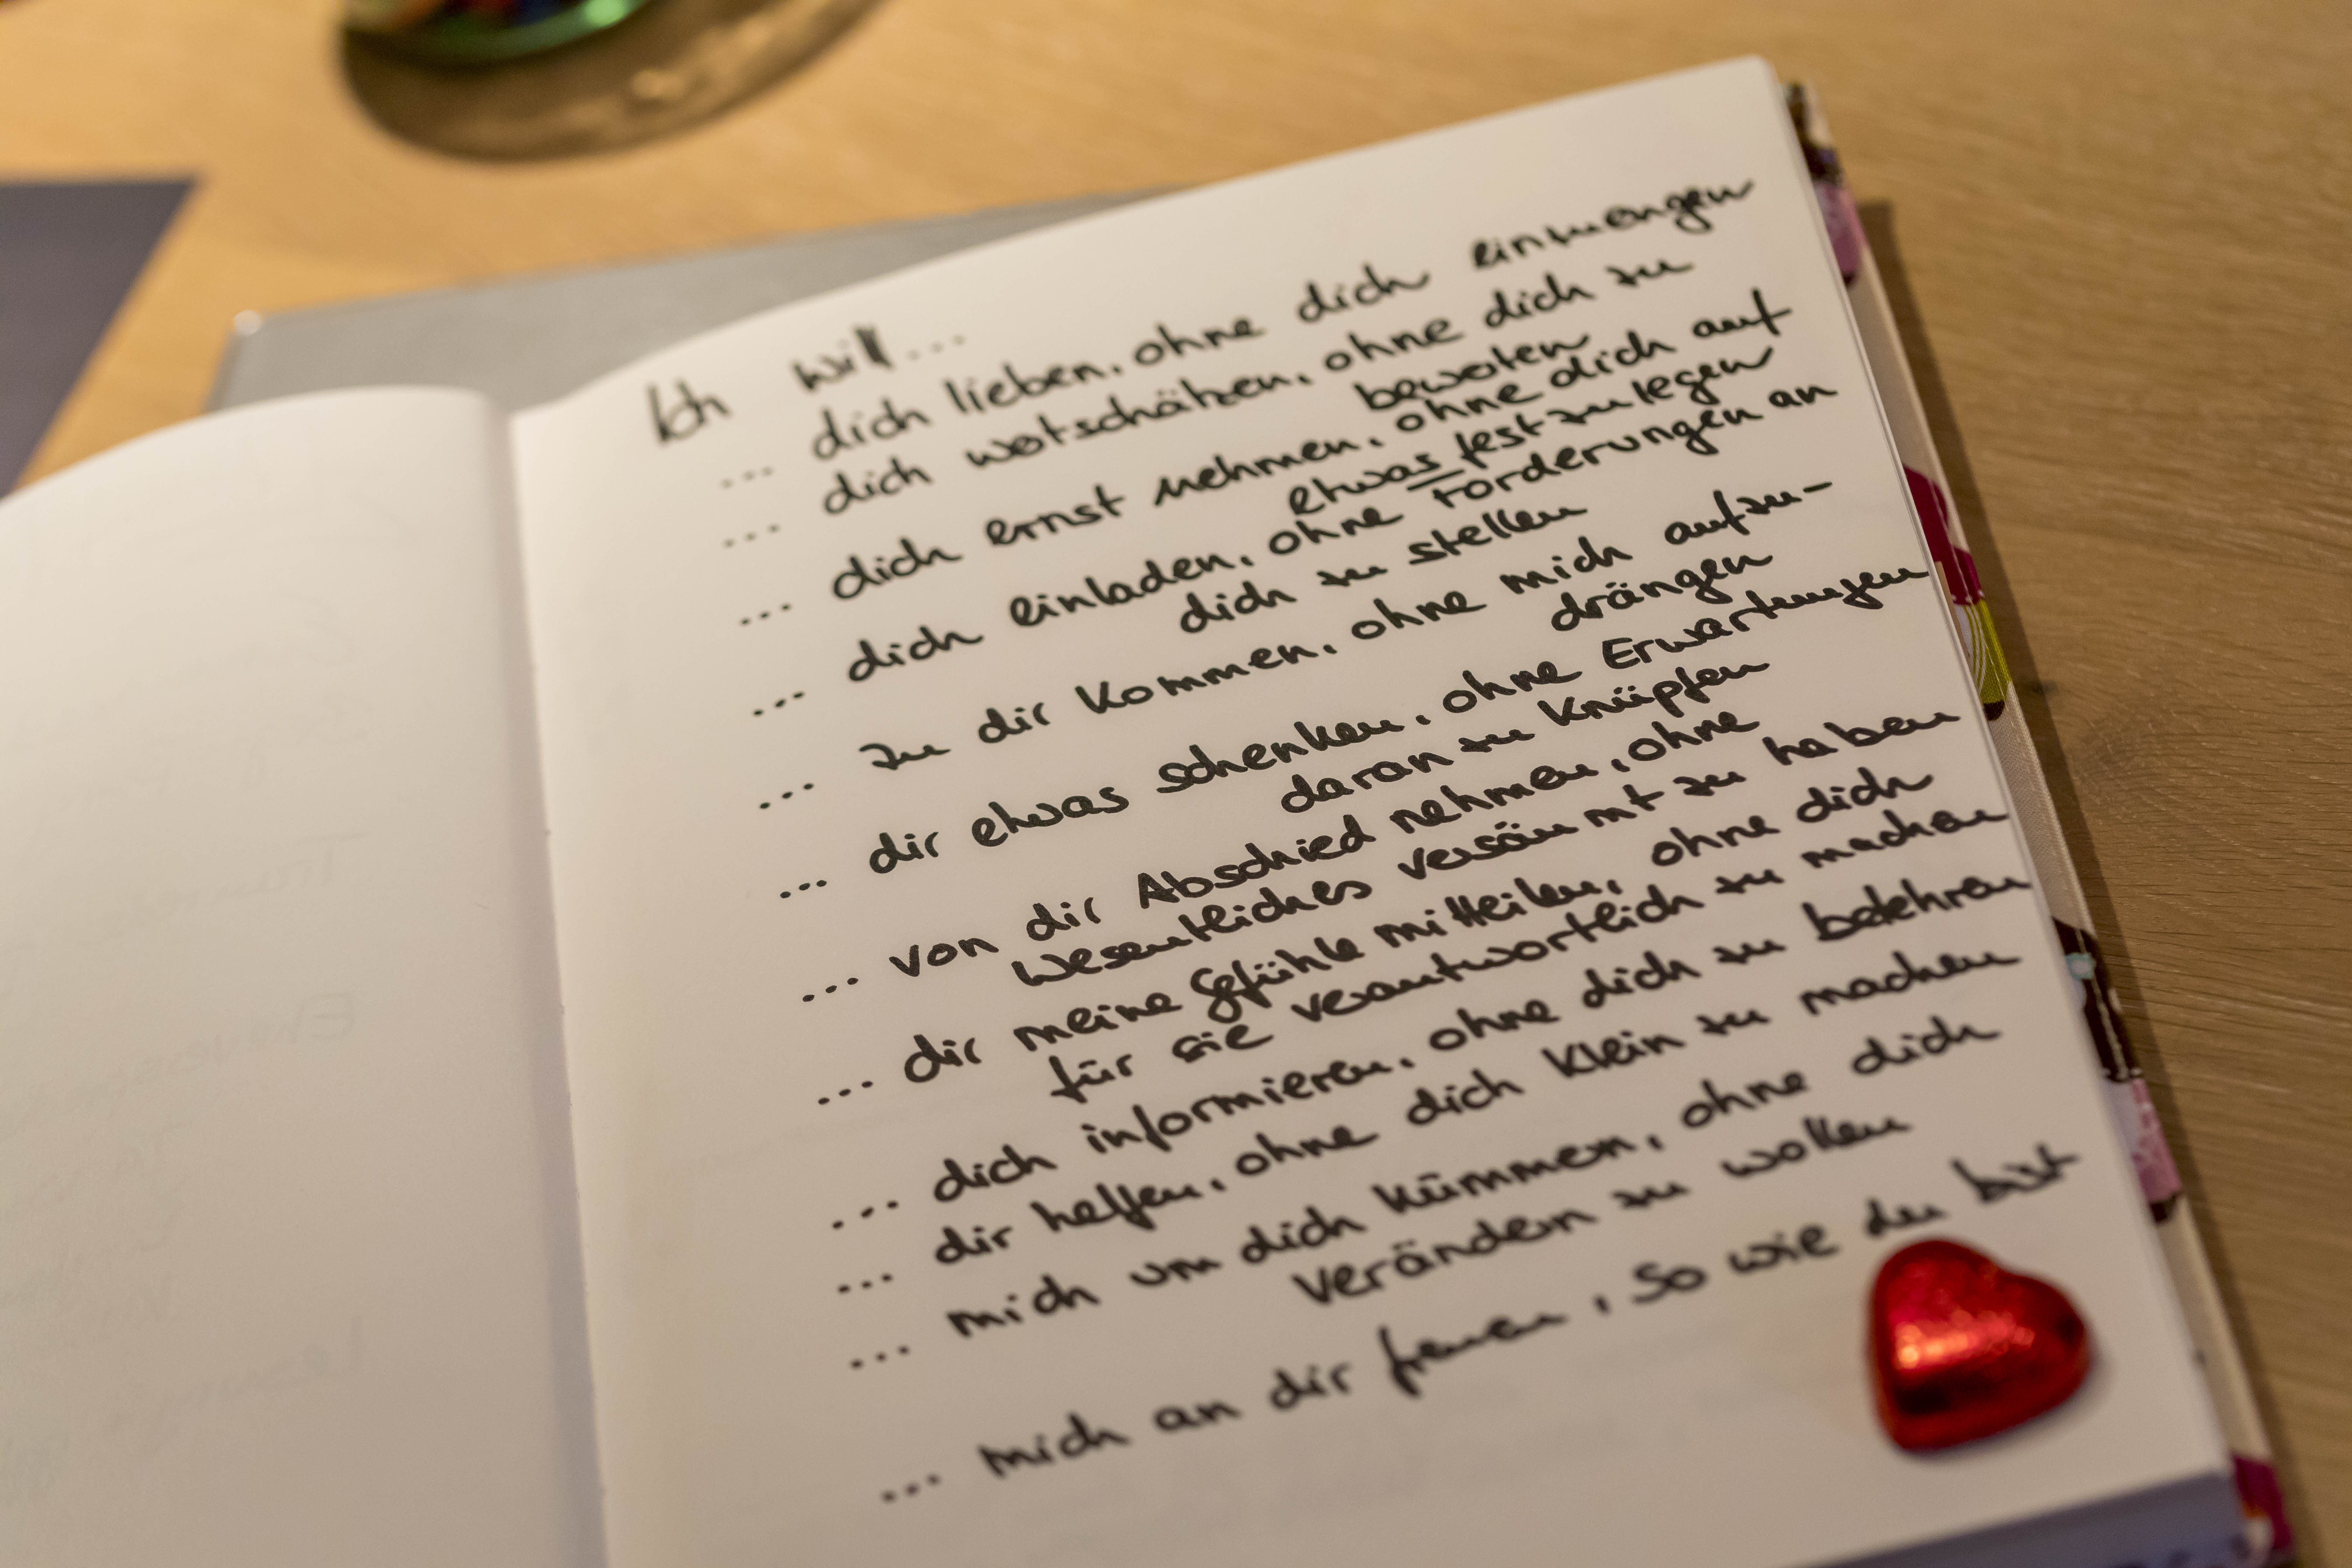 Ich will...
... dich lieben, ohne dich einzuengen
... dich wertschätzen, ohne dich zu
bewerten
... dich ernst nehmen, ohne dich auf
etwas festzulegen
... dich einladen, ohne Forderungen an
dich zu stellen
... zu dir kommen, ohne mich aufzu-
drängen
... dir etwas schenken, ohne Erwartungen
daran zu knüpfen
... von dir Abschied nehmen, ohne
Wesentliches versäumt zu haben
... dir meine Gefühle mitteilen, ohne dich
für sie verantwortlich zu machen
... dich informieren, ohne dich zu belehren
... dir helfen, ohne dich klein zu machen
... mich um dich kümmern, ohne dich
verändern zu wollen
... mich an dir freuen, so wie du bist